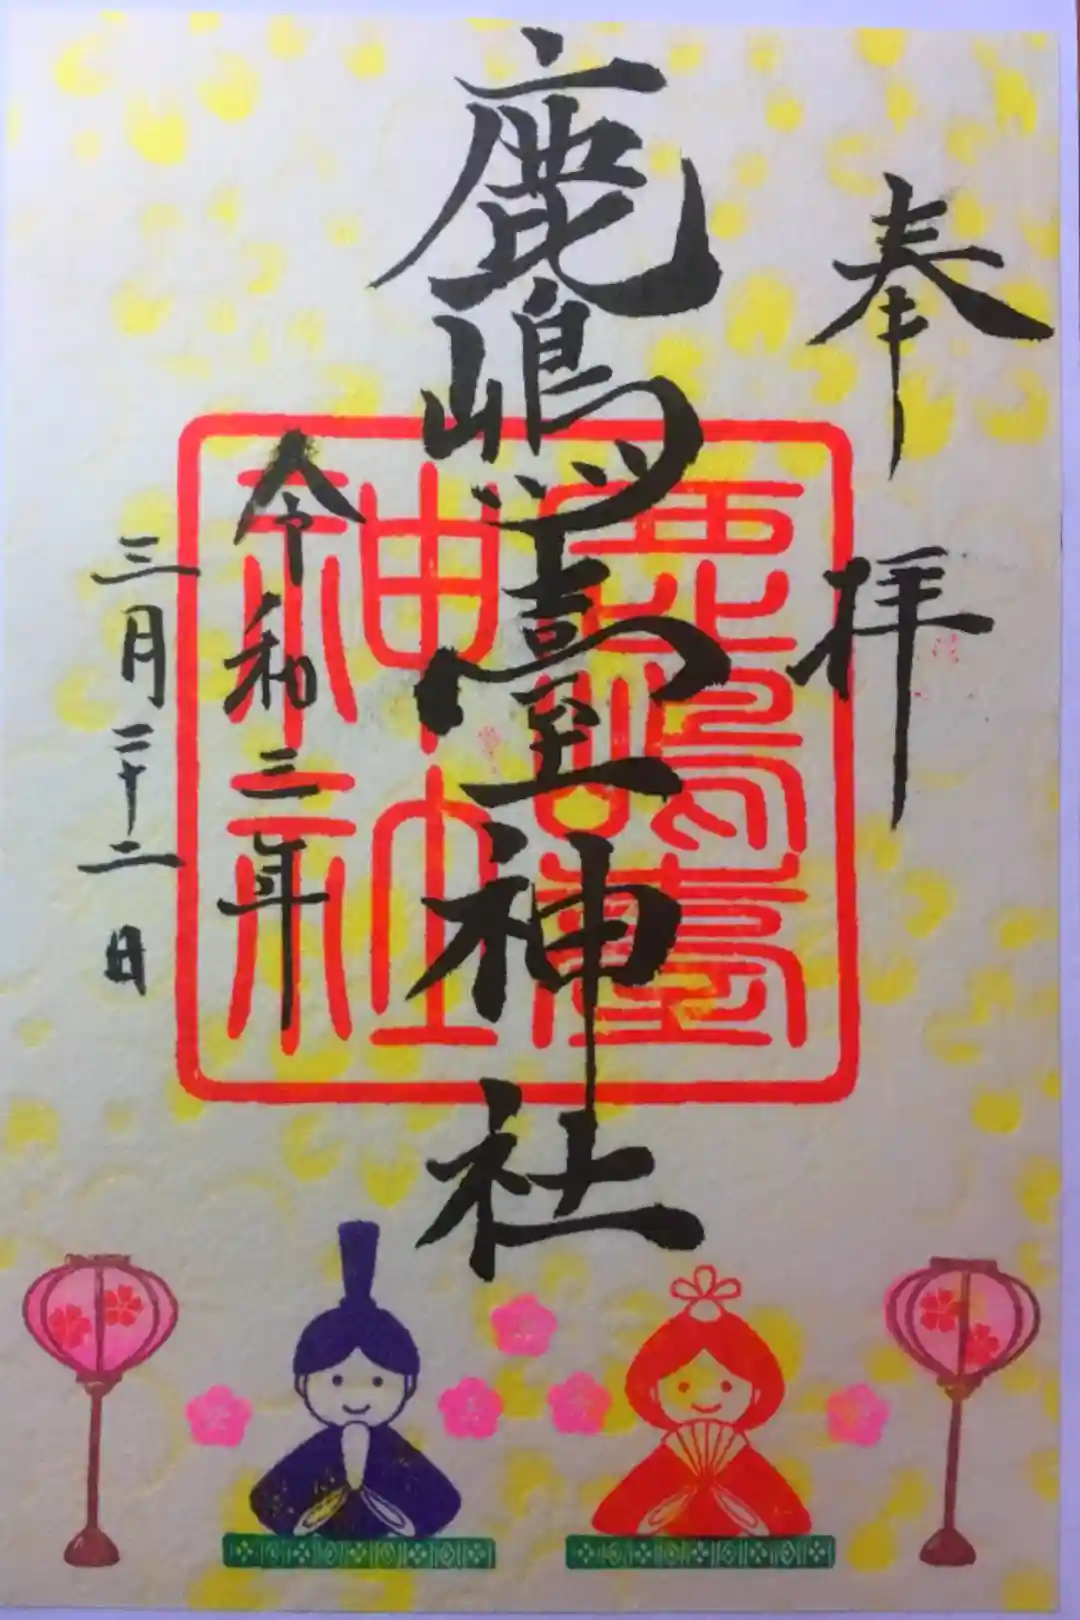 奉拝
鹿嶋臺神社
令和三年
三月二十二日
鹿嶋臺
神社